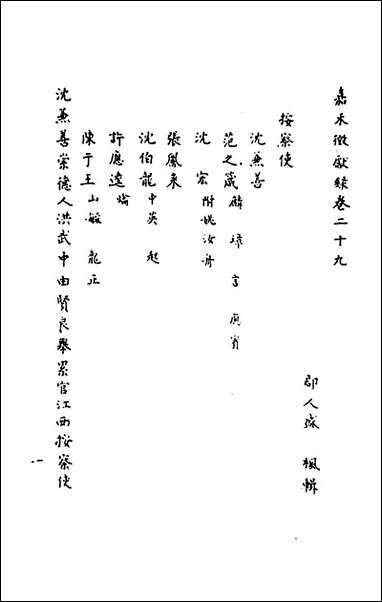 嘉禾徵獻錄卷二十九
郡人盛 楓輯
按察使
沈兼善
范之箴 麟 璋 言 應賓
沈 宏 附姚汝舟
張鳳來
沈伯龍 中英 起
許應逵 爚
陳于王 山毓 龍正
沈兼善崇德人洪武中由賢良舉累官江西按察使
一